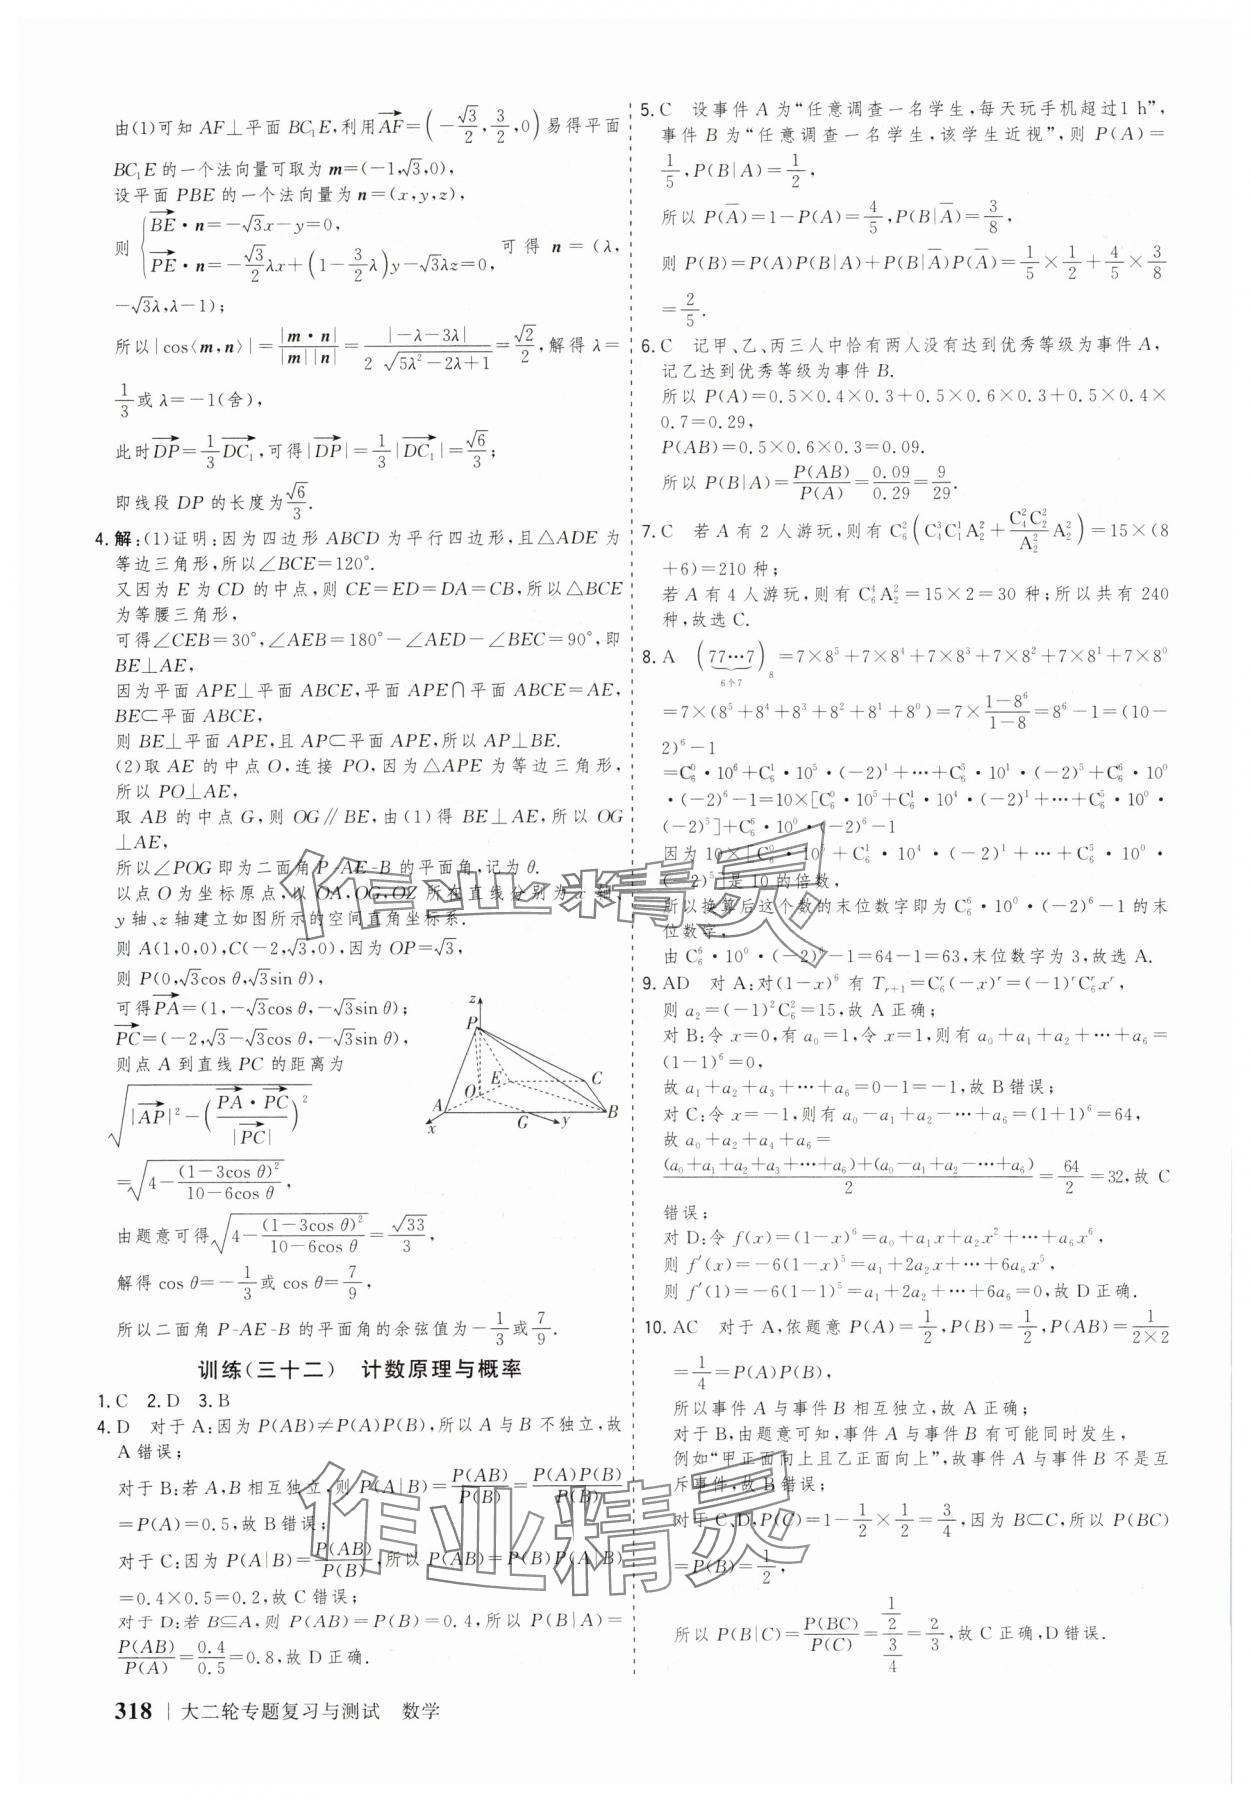 由(1)可知 AF⊥平面 BC₁E,利用$\overrightarrow{AF}=\left(-\frac{\sqrt{3}}{2},\frac{3}{2},0\right)$易得平面
BC₁E 的一个法向量可取为 m=(-1,√3,0),
设平面 PBE 的一个法向量为 n=(x,y,z),
则 $\begin{cases}\overrightarrow{BE}·n=-\sqrt{3}x-y=0,\\ \overrightarrow{PE}·n=-\frac{\sqrt{3}}{2}λx+\left(1-\frac{3}{2}λ\right)y-\sqrt{3}λz=0,\end{cases}$ 可得 n=(λ,
-√3λ,λ-1);
所以|cos⟨m,n⟩|=$\frac{|m·n|}{|m||n|}=\frac{|-λ-3λ|}{2\sqrt{5λ^2-2λ+1}}=\frac{\sqrt{2}}{2}$,解得 λ=
$\frac{1}{3}$或 λ=-1(舍),
此时$\overrightarrow{DP}=\frac{1}{3}\overrightarrow{DC_1}$,可得|$\overrightarrow{DP}$|=$\frac{1}{3}$|$\overrightarrow{DC_1}$|=$\frac{\sqrt{6}}{3}$;
即线段 DP 的长度为$\frac{\sqrt{6}}{3}$.
4.解:(1)证明:因为四边形 ABCD 为平行四边形,且△ADE 为
等边三角形,所以∠BCE=120°.
又因为 E 为 CD 的中点,则 CE=ED=DA=CB,所以△BCE
为等腰三角形,
可得∠CEB=30°,∠AEB=180°-∠AED-∠BEC=90°,即
BE⊥AE,
因为平面 APE⊥平面 ABCE,平面 APE∩平面 ABCE=AE,
BE⊂平面 ABCE,
则 BE⊥平面 APE,且 AP⊂平面 APE,所以 AP⊥BE.
(2)取 AE 的中点 O,连接 PO,因为△APE 为等边三角形,
所以 PO⊥AE,
取 AB 的中点 G,则 OG∥BE,由(1)得 BE⊥AE,所以 OG
⊥AE,
所以∠POG 即为二面角 P-AE-B 的平面角,记为 θ.
以点 O 为坐标原点,以 OA,OG,OZ 所在直线分别为 x 轴、
y 轴、z 轴建立如图所示的空间直角坐标系.
则 A(1,0,0),C(-2,√3,0),因为 OP=√3,
则 P(0,√3cos θ,√3sin θ),
可得$\overrightarrow{PA}$=(1,-√3cos θ,-√3sin θ);
$\overrightarrow{PC}$=(-2,√3-√3cos θ,-√3sin θ),
则点 A 到直线 PC 的距离为
$\sqrt{|\overrightarrow{AP}|^2-\left(\frac{\overrightarrow{PA}·\overrightarrow{PC}}{|\overrightarrow{PC}|}\right)^2}$
=$\sqrt{4-\frac{(1-3\cos θ)^2}{10-6\cos θ}}$,
z
P
E
C
O
A
B
G
x
y
由题意可得$\sqrt{4-\frac{(1-3\cos θ)^2}{10-6\cos θ}}=\frac{\sqrt{33}}{3}$,
解得 cos θ=-$\frac{1}{3}$或 cos θ=$\frac{7}{9}$,
所以二面角 P-AE-B 的平面角的余弦值为-$\frac{1}{3}$或$\frac{7}{9}$.
训练(三十二) 计数原理与概率
1.C 2.D 3.B
4.D 对于 A:因为 P(AB)≠P(A)P(B),所以 A 与 B 不独立,故
A 错误;
对于 B:若 A,B 相互独立,则 P(A|B)=$\frac{P(AB)}{P(B)}=\frac{P(A)P(B)}{P(B)}$
=P(A)=0.5,故 B 错误;
对于 C:因为 P(A|B)=$\frac{P(AB)}{P(B)}$,所以 P(AB)=P(B)P(A|B)
=0.4×0.5=0.2,故 C 错误;
对于 D:若 B⊆A,则 P(AB)=P(B)=0.4,所以 P(B|A)=
$\frac{P(AB)}{P(A)}=\frac{0.4}{0.5}$=0.8,故 D 正确.
5.C 设事件 A 为“任意调查一名学生,每天玩手机超过1 h”,
事件 B 为“任意调查一名学生,该学生近视”,则 P(A)=
$\frac{1}{5}$,P(B|A)=$\frac{1}{2}$,
所以 P($\overline{A}$)=1-P(A)=$\frac{4}{5}$,P(B|$\overline{A}$)=$\frac{3}{8}$,
则 P(B)=P(A)P(B|A)+P(B|$\overline{A}$)P($\overline{A}$)=$\frac{1}{5}×\frac{1}{2}+\frac{4}{5}×\frac{3}{8}$
=$\frac{2}{5}$.
6.C 记甲、乙、丙三人中恰有两人没有达到优秀等级为事件 A,
记乙达到优秀等级为事件 B.
所以 P(A)=0.5×0.4×0.3+0.5×0.6×0.3+0.5×0.4×
0.7=0.29,
P(AB)=0.5×0.6×0.3=0.09.
所以 P(B|A)=$\frac{P(AB)}{P(A)}=\frac{0.09}{0.29}=\frac{9}{29}$.
7.C 若 A 有 2 人游玩,则有 $C_6^2\left(C_4^3C_1^1A_2^2+\frac{C_4^2C_2^2}{A_2^2}A_2^2\right)$=15×(8
+6)=210 种;
若 A 有 4 人游玩,则有 $C_6^4A_2^2$=15×2=30 种;所以共有 240
种,故选 C.
8.A $\left(\underbrace{77…7}_{6个7}\right)_8$=7×8⁵+7×8⁴+7×8³+7×8²+7×8¹+7×8⁰
=7×(8⁵+8⁴+8³+8²+8¹+8⁰)=7×$\frac{1-8^6}{1-8}$=8⁶-1=(10-
2)⁶-1
=$C_6^0$·10⁶+$C_6^1$·10⁵·(-2)¹+…+$C_6^5$·10¹·(-2)⁵+$C_6^6$·10⁰
·(-2)⁶-1=10×[$C_6^0$·10⁵+$C_6^1$·10⁴·(-2)¹+…+$C_6^5$·10⁰·
(-2)⁵]+$C_6^6$·10⁰·(-2)⁶-1
因为 10×[$C_6^0$·10⁵+$C_6^1$·10⁴·(-2)¹+…+$C_6^5$·10⁰·
(-2)⁵]是 10 的倍数,
所以换算后这个数的末位数字即为 $C_6^6$·10⁰·(-2)⁶-1 的末
位数字,
由 $C_6^6$·10⁰·(-2)⁶-1=64-1=63,末位数字为 3,故选 A.
9.AD 对 A:对(1-x)⁶ 有 $T_{r+1}=C_6^r(-x)^r=(-1)^rC_6^rx^r$,
则 a₂=(-1)²$C_6^2$=15,故 A 正确;
对 B:令 x=0,有 a₀=1,令 x=1,则有 a₀+a₁+a₂+…+a₆=
(1-1)⁶=0,
故 a₁+a₂+a₃+…+a₆=0-1=-1,故 B 错误;
对 C:令 x=-1,则有 a₀-a₁+a₂-…+a₆=(1+1)⁶=64,
故 a₀+a₂+a₄+a₆=
$\frac{(a_0+a_1+a_2+a_3+…+a_6)+(a_0-a_1+a_2-…+a_6)}{2}=\frac{64}{2}$=32,故 C
错误;
对 D:令 f(x)=(1-x)⁶=a₀+a₁x+a₂x²+…+a₆x⁶,
则 f′(x)=-6(1-x)⁵=a₁+2a₂x+…+6a₆x⁵,
则 f′(1)=-6(1-1)⁵=a₁+2a₂+…+6a₆=0,故 D 正确.
10.AC 对于 A,依题意 P(A)=$\frac{1}{2}$,P(B)=$\frac{1}{2}$,P(AB)=$\frac{1}{2×2}$
=$\frac{1}{4}$=P(A)P(B),
所以事件 A 与事件 B 相互独立,故 A 正确;
对于 B,由题意可知,事件 A 与事件 B 有可能同时发生,
例如“甲正面向上且乙正面向上”,故事件 A 与事件 B 不是互
斥事件,故 B 错误;
对于 C、D,P(C)=1-$\frac{1}{2}×\frac{1}{2}=\frac{3}{4}$,因为 B⊂C,所以 P(BC)
=P(B)=$\frac{1}{2}$,
所以 P(B|C)=$\frac{P(BC)}{P(C)}=\frac{\frac{1}{2}}{\frac{3}{4}}=\frac{2}{3}$,故 C 正确,D 错误.
318 | 大二轮专题复习与测试 数学
作业精灵
作业精灵